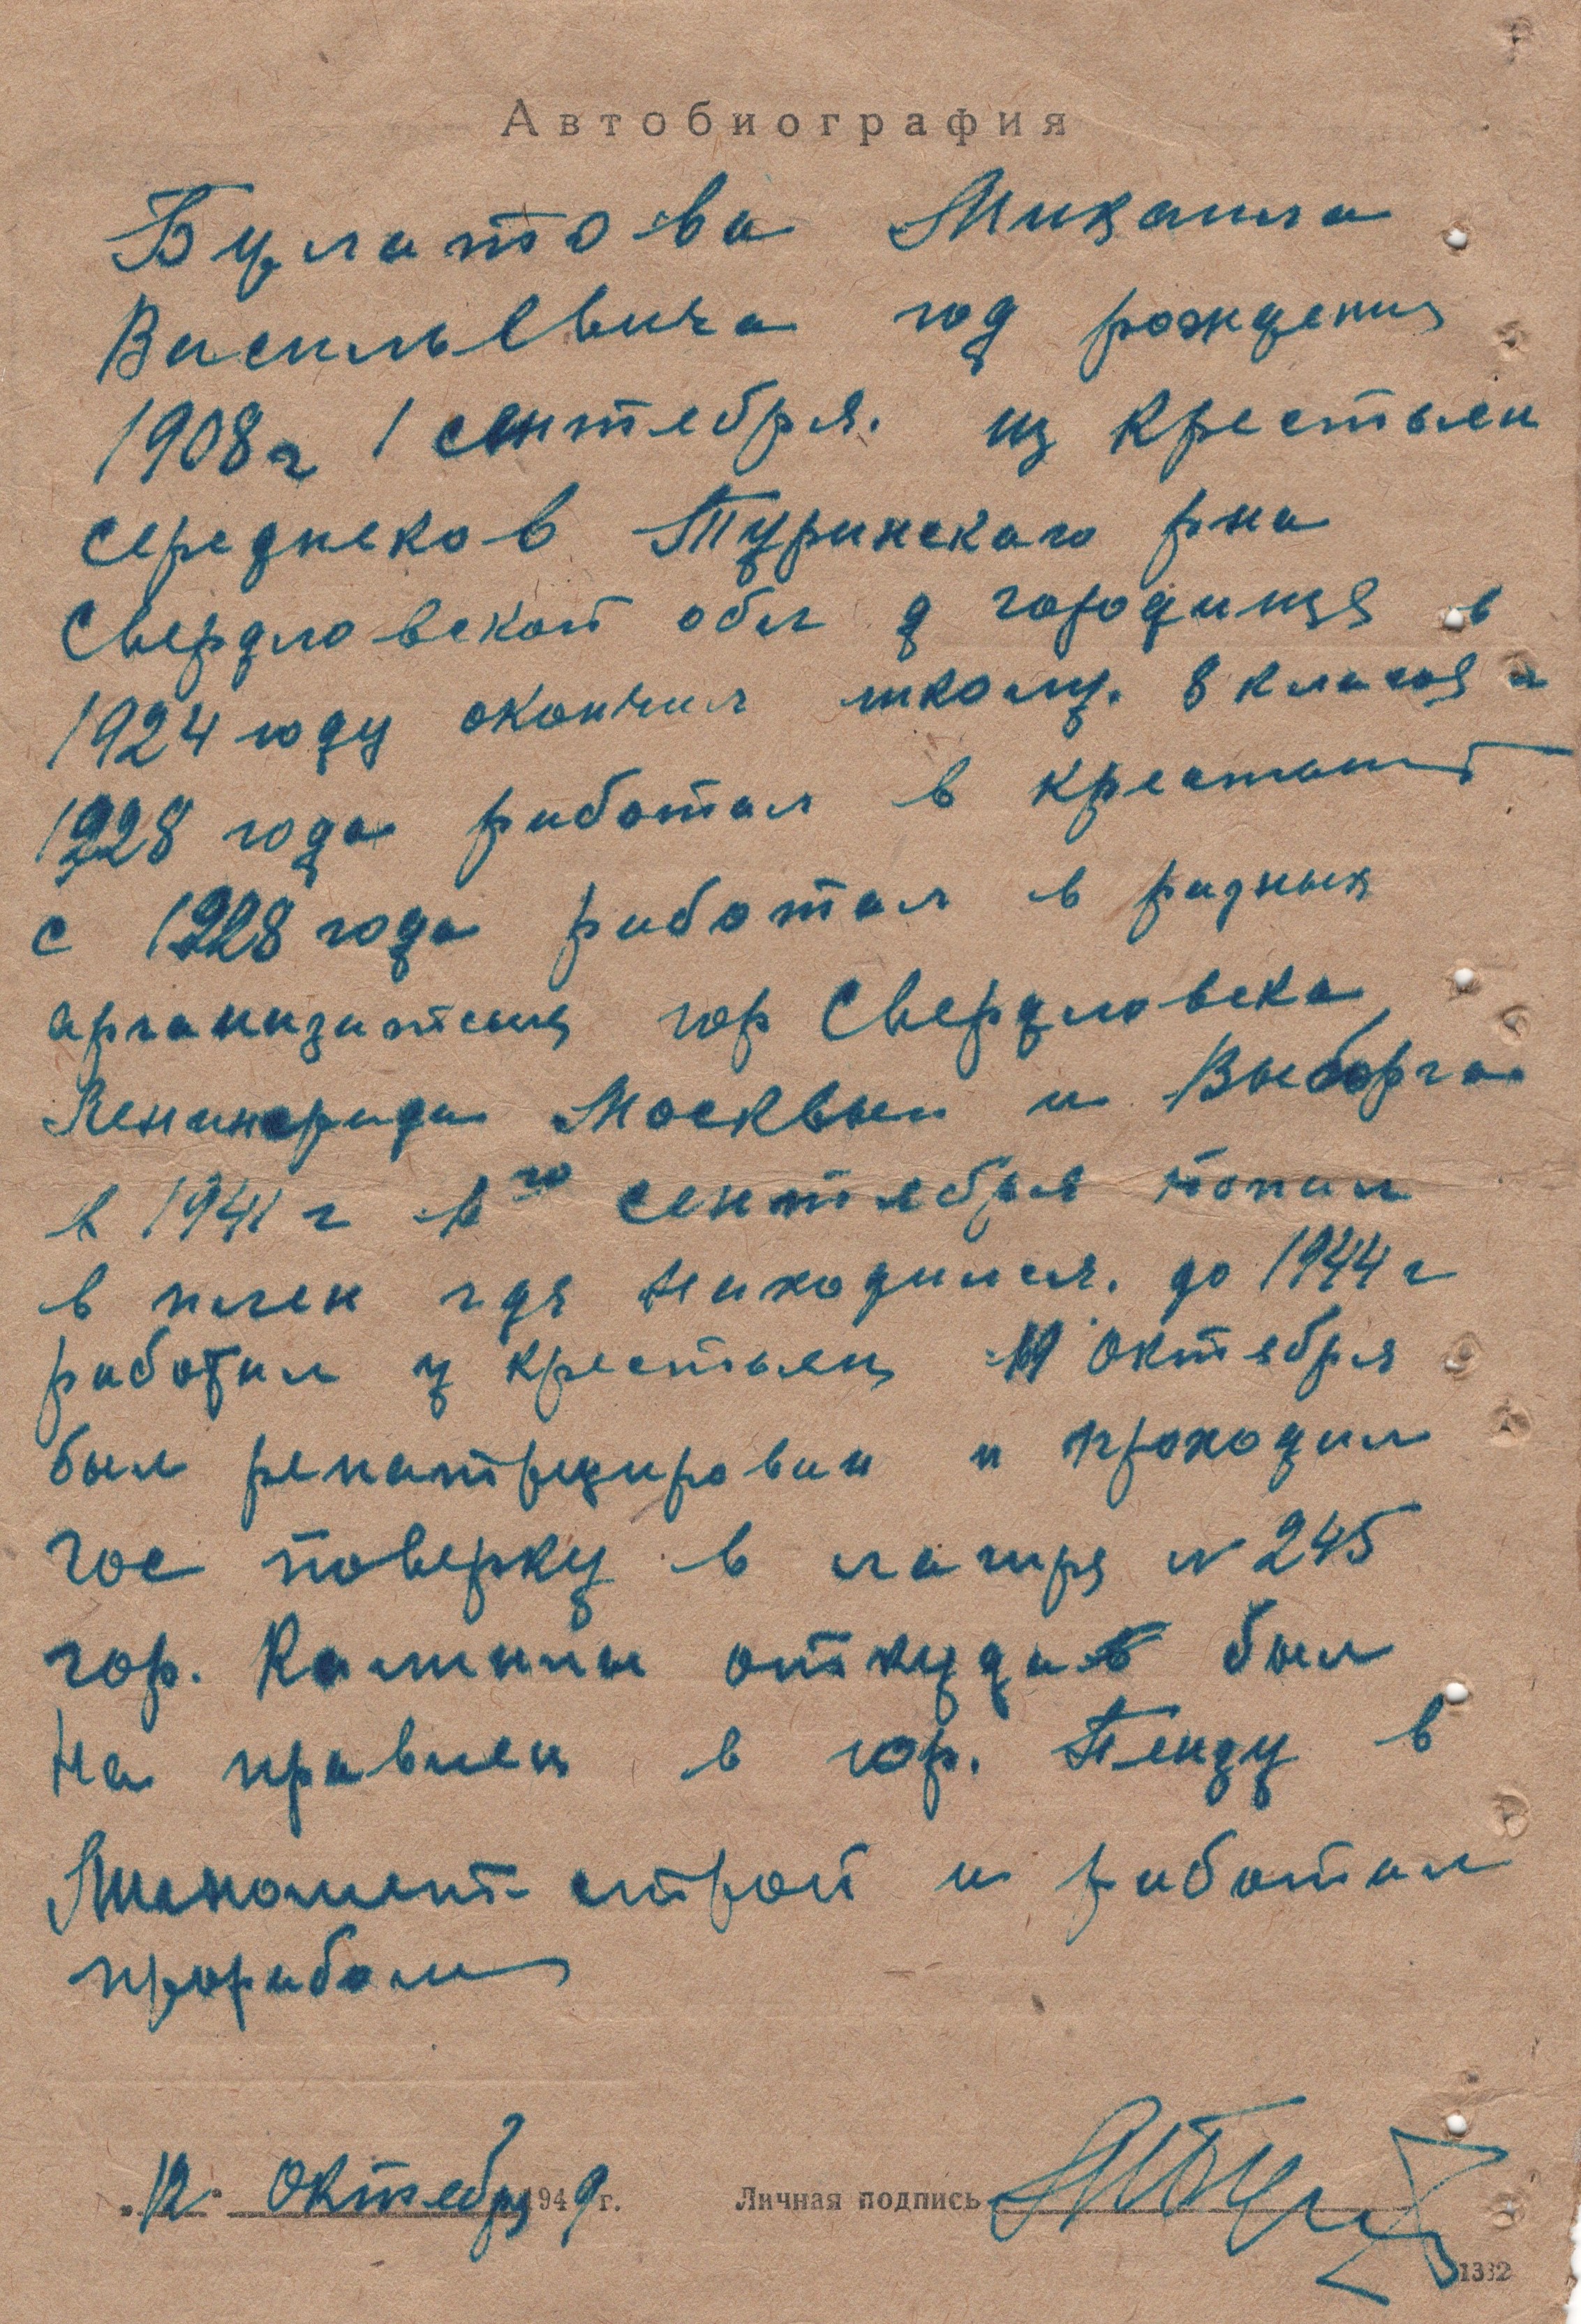 Автобиография
Булатова Михаила
Васильевича год рождения
1908 г 1 сентября. из крестьян
середняков Туринского рна
Свердловской обл д городища в
1924 году окончил школу. 8 класов и
1928 года работал в крестьянст
с 1928 года работал в разных
арганизатсыях гор Свердловска
Ленинграда Москвы и Выборга
в 1941 г 1го сентября попал
в плен гдя находился. до 1944 г
работал у крестьян 19 октября
был репатреирован и проходил
гос поверку в лагиря N 245
гор. откуда был
На правлен в гор. Пензу в
строй и работал
прорабом
"12" Октября 1949 г. Личная подпись
1332